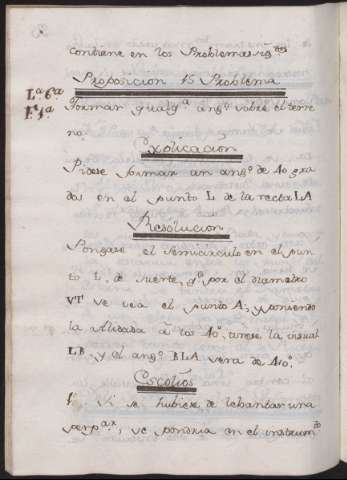 contiene en los Problemas sig.tes
Proposicion 15 Problema
La. 6.a
F. 1.a
Formar qualq.a ang.o sobre el terre
no.
Explicacion
Pidese formar un ang.o de 40 gra
dos en el punto L de la recta LA
Resolucion
Pongase el semicirculo en el pun
to L, de suerte, q.e por el diametro
VT se vea el punto A, y poniendo
la Alidada a los 40.o, tirese la visual
LB, y el ang.o BLA sera de 40.o
Escolios
1.o Si se hubiese de lebantar una
perp.ar, se pondria en el instrum.to